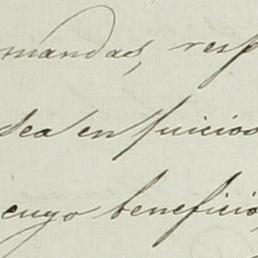 mandas, resp
sea en juicios
cuyo beneficio,